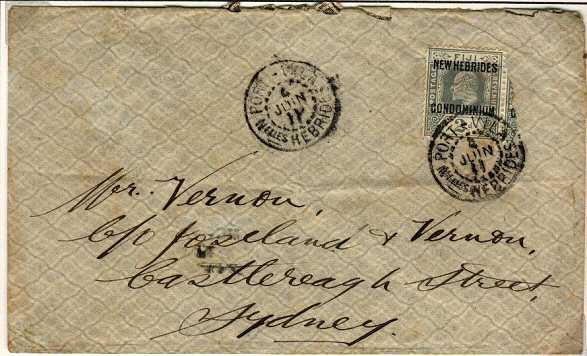 FIJI
POSTAGE
NEW HEBRIDES
CONDOMINIUM
PORT-VILA
4
JUIN
11
Nelles HEBRIDES
PORT-VILA
4
JUIN
11
Nelles HEBRIDES
Mr. Vernon,
C/o Joseland & Vernon,
Castlereagh Street,
Sydney.